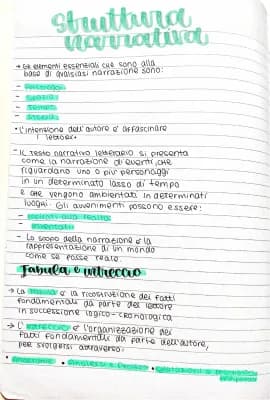 Struttura
narrativa
→ Gli elementi essenziali che sono alla
base di qualsiasi narrazione sono:
- Personaggi
- Spazio
- Tempo
- Storia
• L'intenzione dell'autore è affascinare
i lettori
• Il testo narrativo letterario si presenta
come la narrazione di eventi, che
riguardano uno o più personaggi
in un determinato lasso di tempo
e che vengono ambientati in determinati
luoghi. Gli avvenimenti possono essere:
- ispirati alla realtà
inventati
- Lo scopo della narrazione è la
rappresentazione di un mondo
come se fosse reale.
Fabula e intreccio
→ La fabula è la ricostruzione dei fatti
fondamentali da parte del lettore
in successione logico-cronologica
→ L'intreccio è l'organizzazione dei
fatti fondamentali da parte dell'autore,
per svolgersi attraverso: